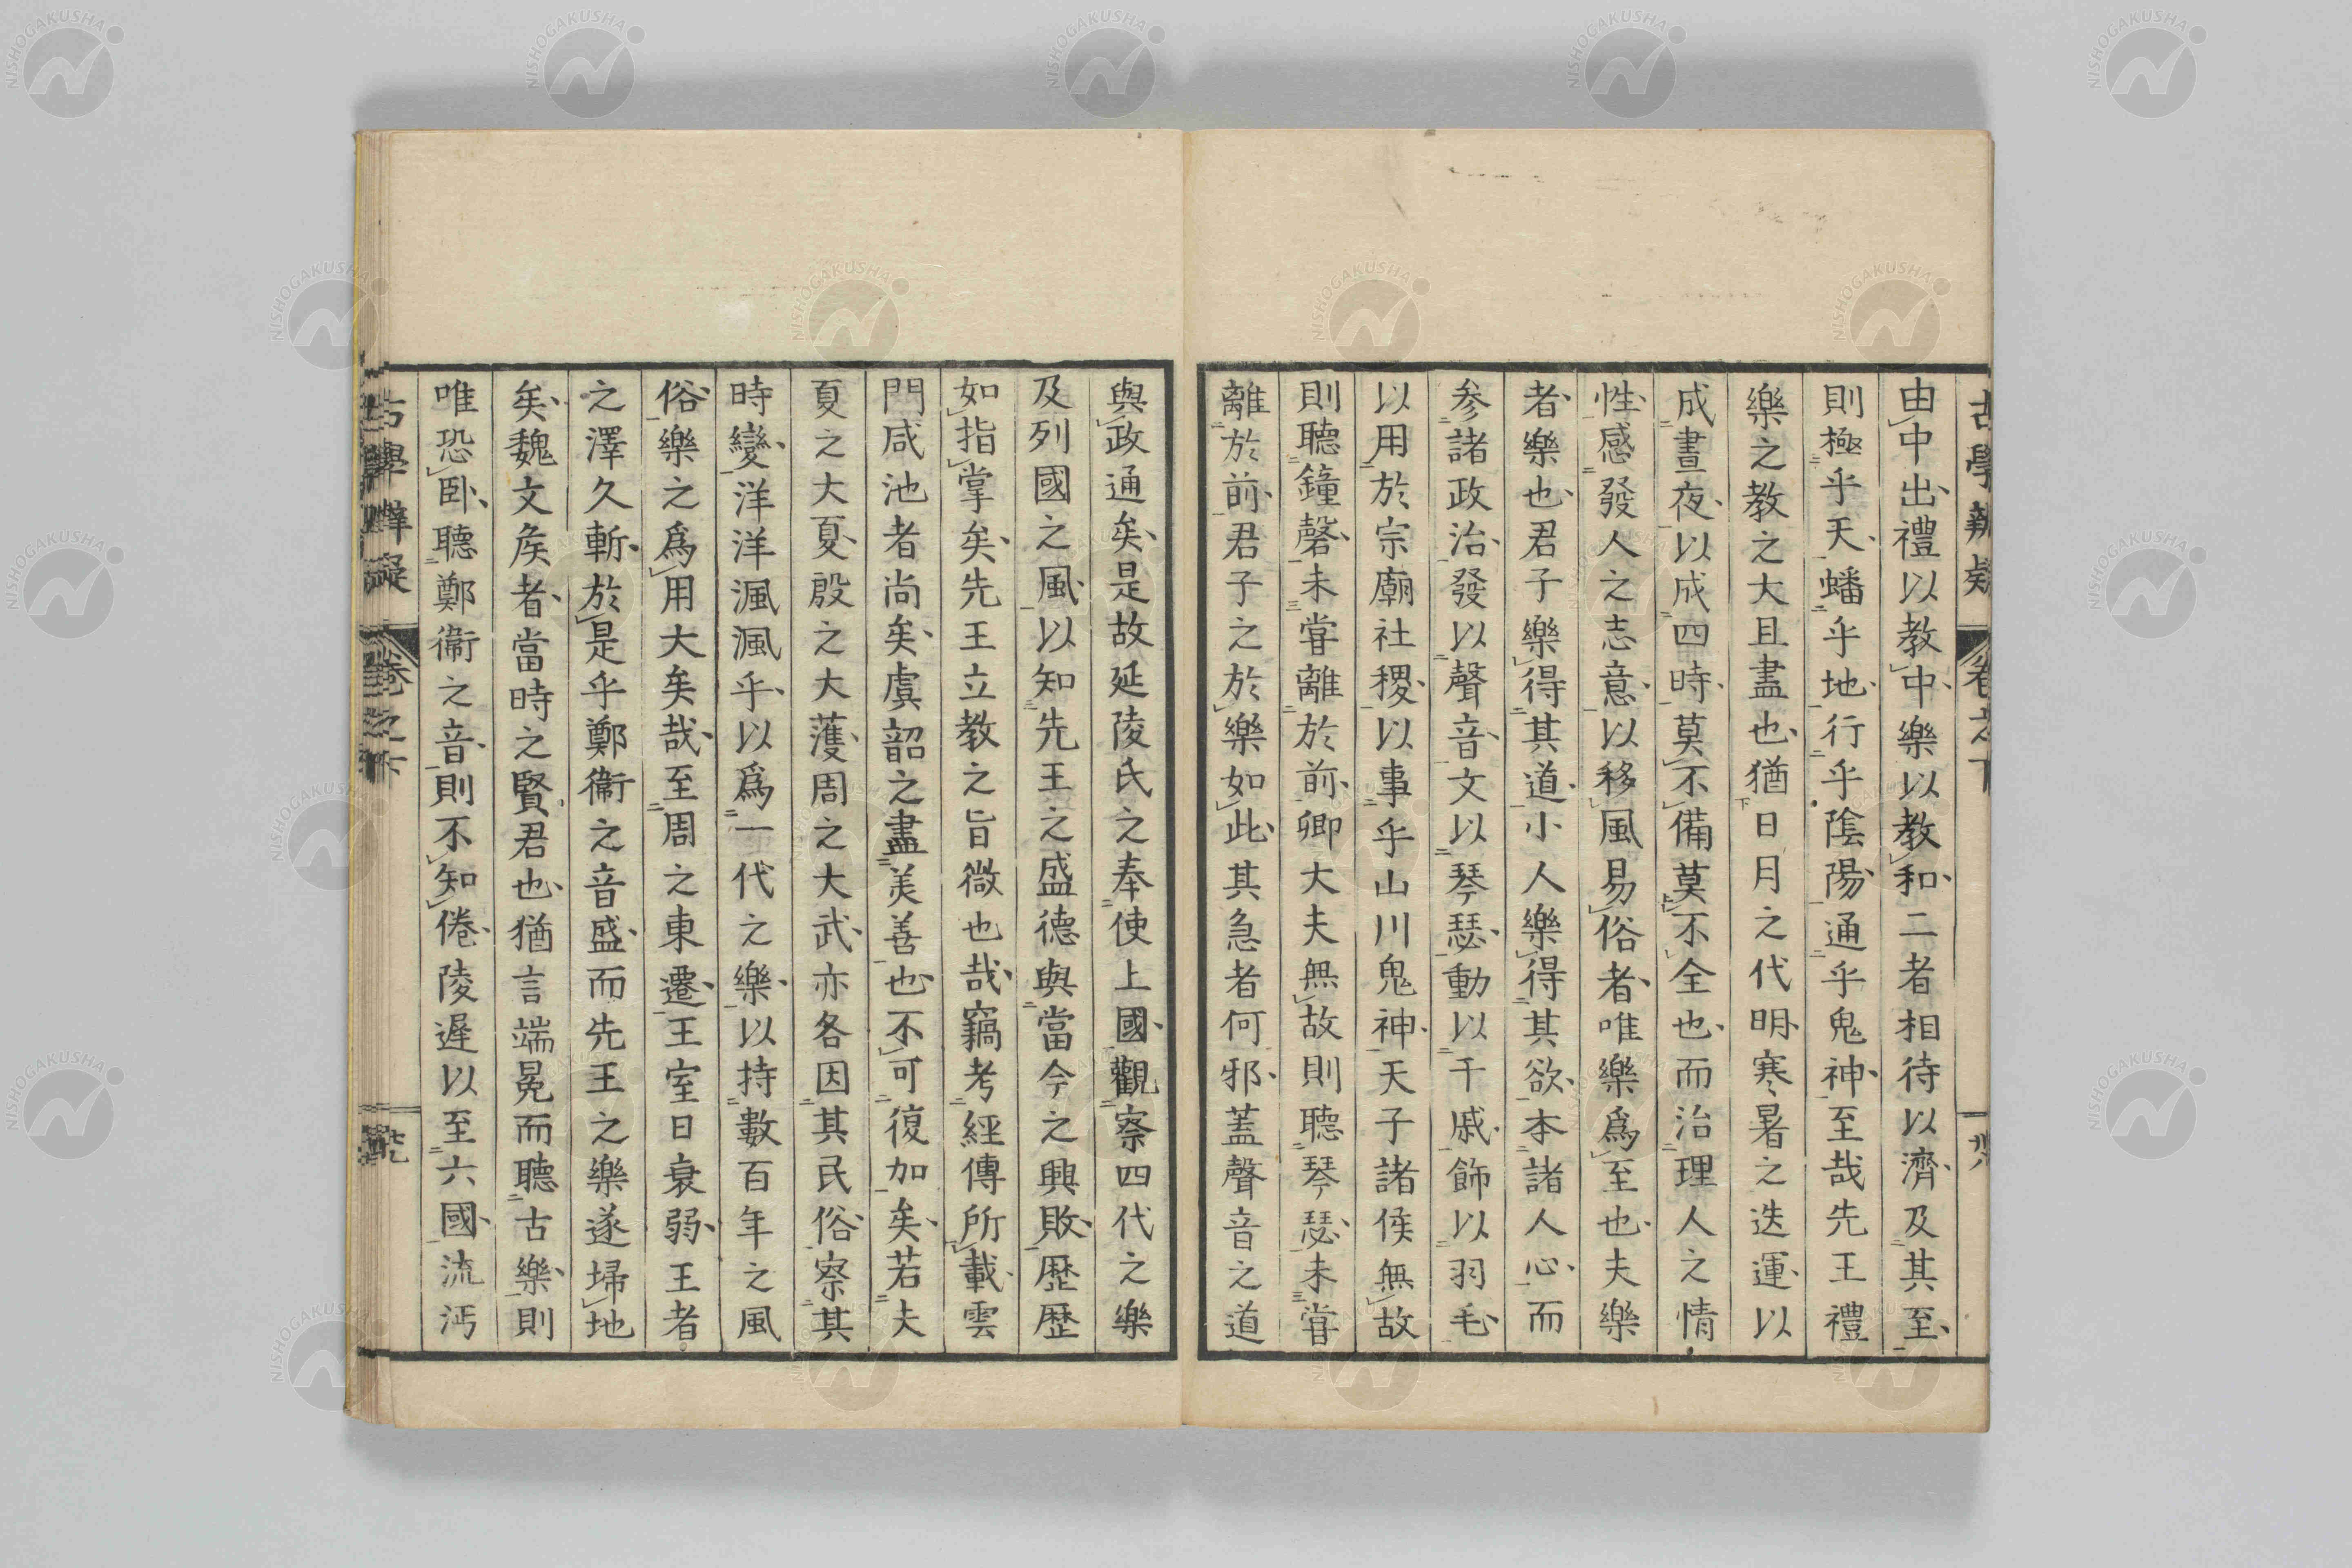 古學辨疑 卷之下
由中出禮以教中樂以教和二者相待以濟及其至
則極乎天蟠乎地行乎陰陽通乎鬼神至哉先王禮
樂之教之大且盡也猶日月之代明寒暑之迭運以
成晝夜以成四時莫不備莫不全也而治理人之情
性感發人之志意以移風易俗者唯樂爲至也夫樂
者樂也君子樂得其道小人樂得其欲本諸人心而
参諸政治發以聲音文以琴瑟動以干戚飾以羽毛
以用於宗廟社稷以事乎山川鬼神天子諸侯無故
則聽鐘磬未嘗離於前卿大夫無故則聽琴瑟未嘗
離於前君子之於樂如此其急者何邪蓋聲音之道
與政通矣是故延陵氏之奉使上國觀察四代之樂
及列國之風以知先王之盛德與當今之興敗歷歷
如指掌矣先王立教之旨微也哉竊考經傳所載雲
門咸池者尚矣虞韶之盡美善也不可復加矣若夫
夏之大夏殷之大濩周之大武亦各因其民俗察其
時變洋洋渢渢乎以爲一代之樂以持數百年之風
俗樂之爲用大矣哉至周之東遷王室日衰弱王者
之澤久斬於是乎鄭衞之音盛而先王之樂遂埽地
矣魏文矦者當時之賢君也猶言端冕而聽古樂則
唯恐卧聽鄭衞之音則不知倦陵遲以至六國流沔
古學辨疑 卷之下
NISHOGAKUSHA